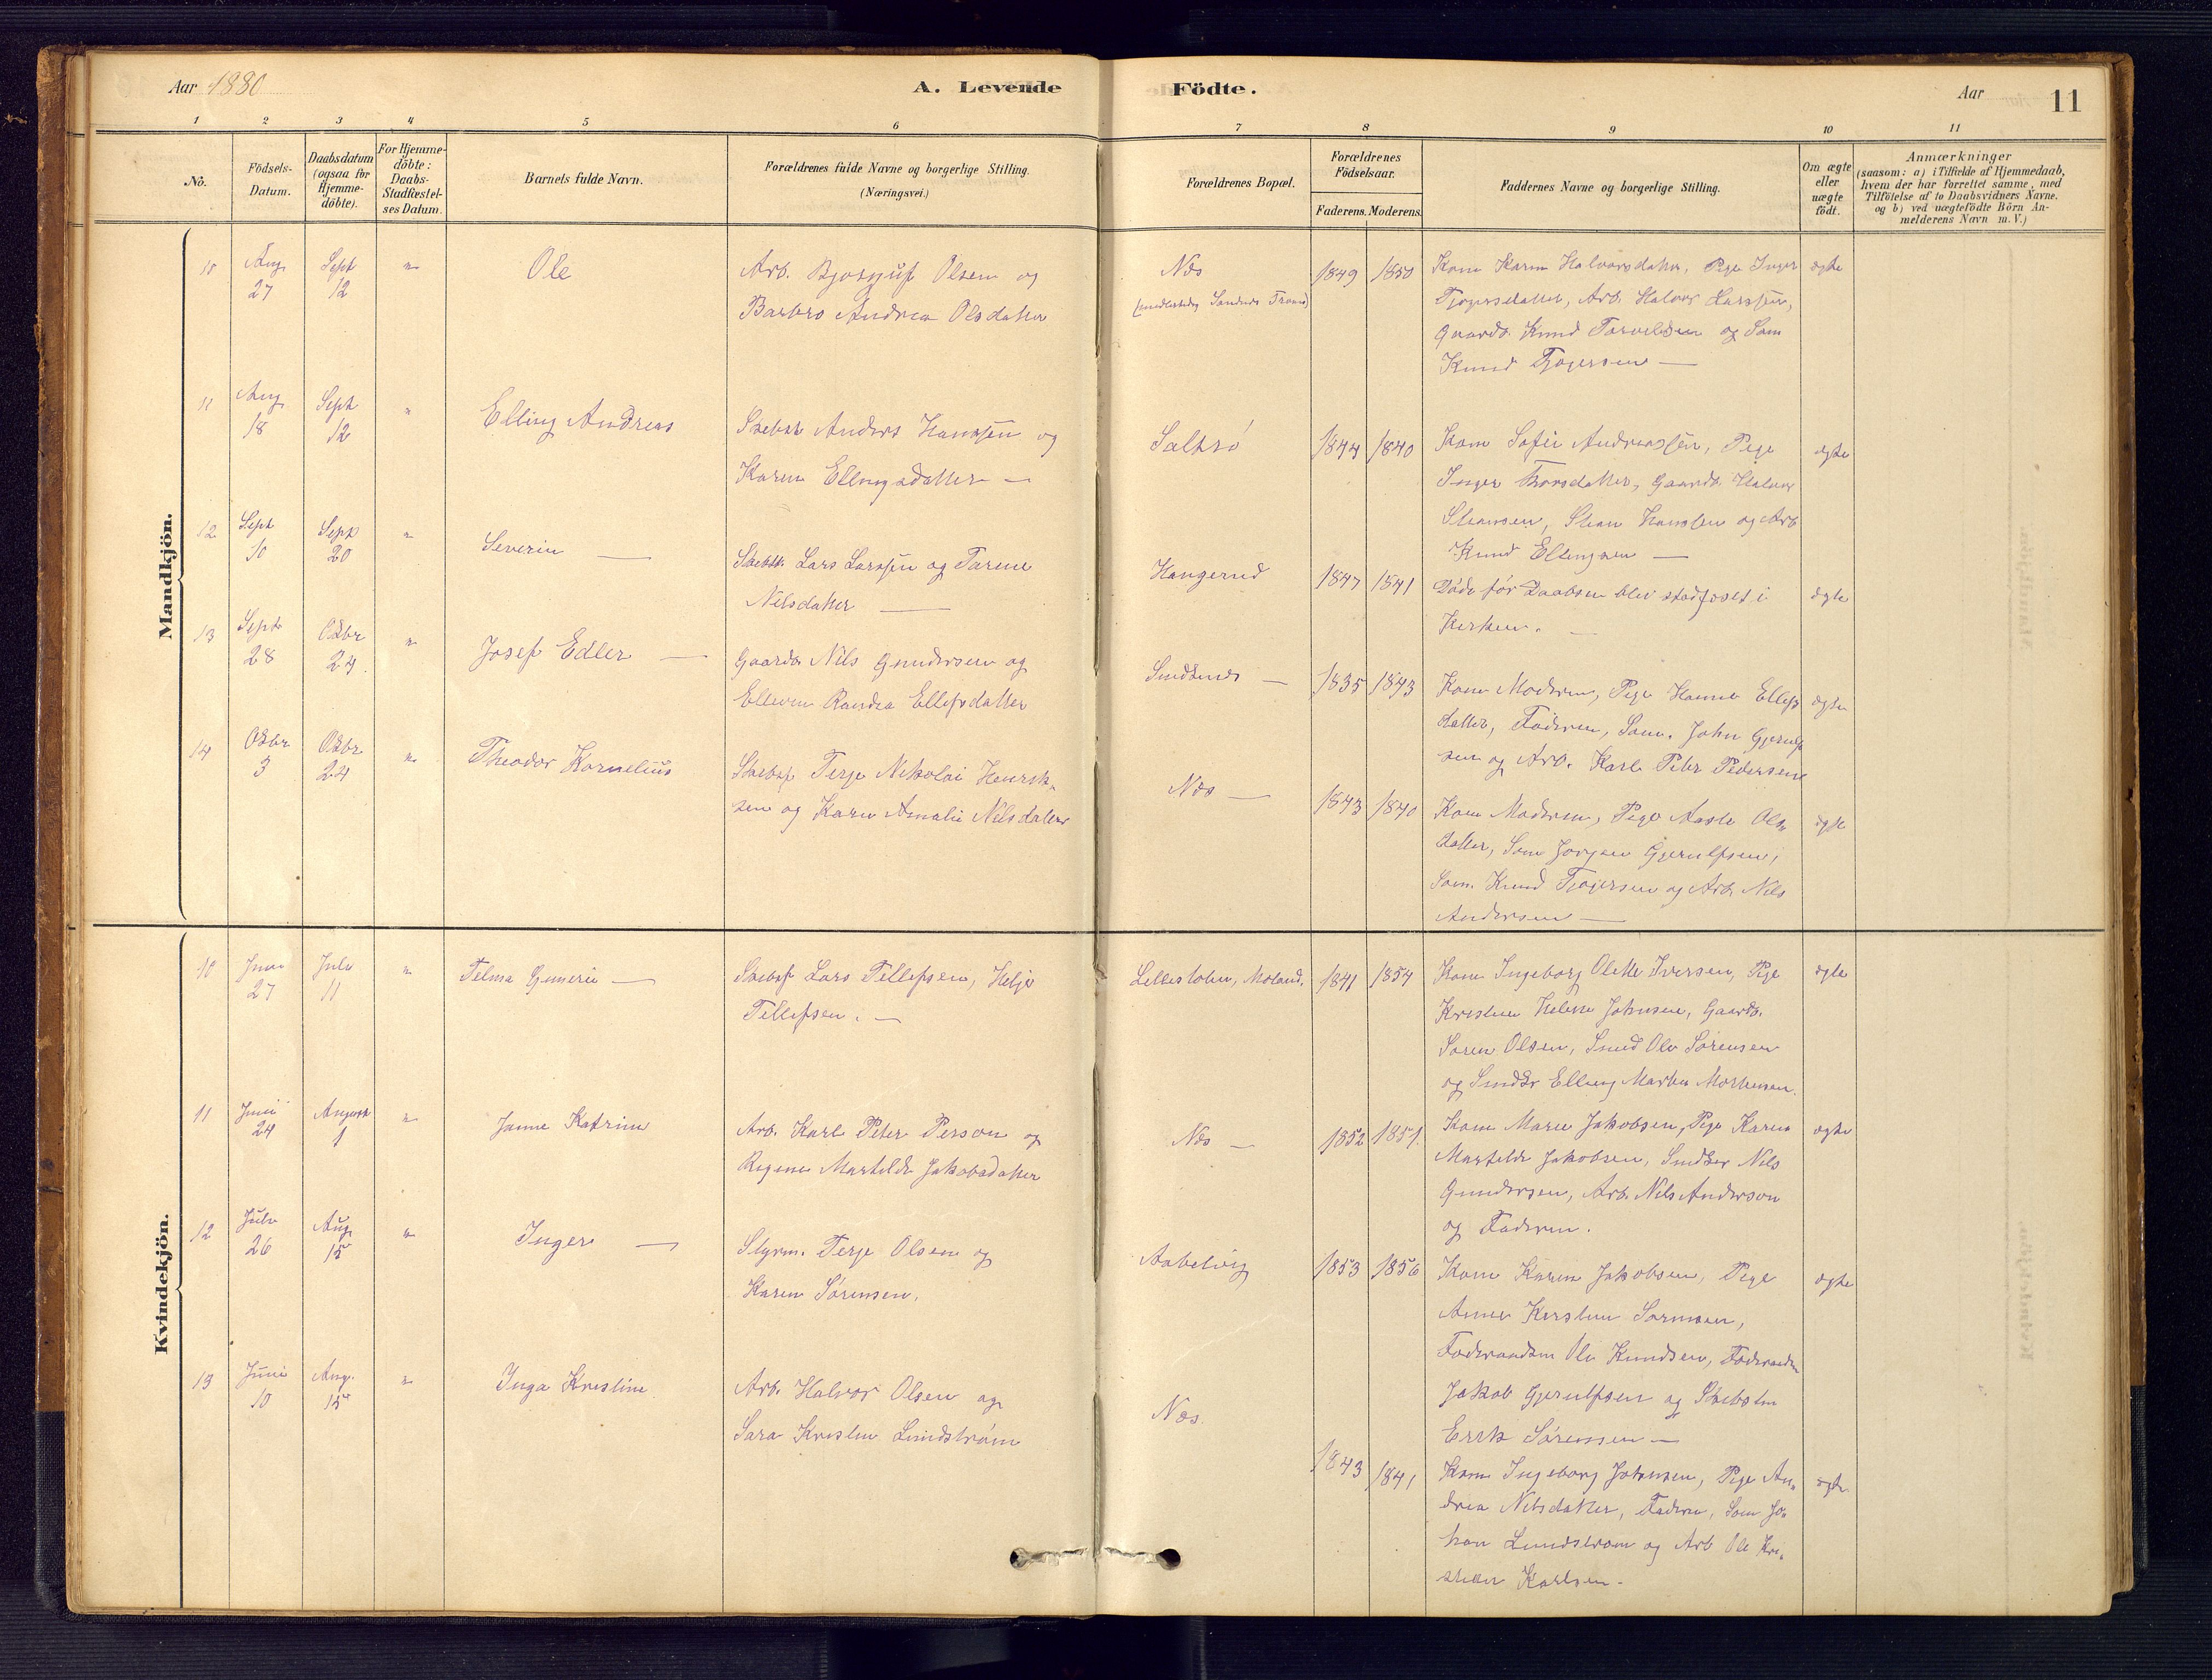 Aar 1880
A. Levende
Födte.
Aar
11
1
2
3
4
5
6
7
8
9
10
11
No.
Födsels-
Datum.
Daabsdatum
(ogsaa for
Hjemme-
döbte).
For Hjemme-
döbte:
Daabs-
Stadfæstel-
ses Datum.
Barnets fulde Navn.
Forældrenes fulde Navne og borgerlige Stilling.
(Næringsvei.)
Forældrenes Bopæl.
Forældrenes
Födselsaar.
Faderens.
Moderens.
Faddernes Navne og borgerlige Stilling.
Om ægte
eller
uægte
födt.
Anmærkninger
(saasom: a) i Tilfælde af Hjemmedaab,
hvem der har forrettet samme, med
Tilföielse af to Daabsvidners Navne.
og b) ved uægtefödte Börn An-
melderens Navn m.V.)
Mandkjön.
10
Aug
27
Sept
12
"
Ole
Arb. Olsen og
Barbro Andrea Olsdatter
Næs
1849
1850
Kone Karen Halvorsdatter, Pige Inger
datter, Arb. Halvor
Gaardb. Knud og Søm
Knud
ægte
11
Aug
18
Sept
12
"
Elling Andreas
Anders Hansen og
Karen Ellingsdatter
Saltrø
1844
1840
Kone Sofie Andreassen, Pige
Inger Thorsdatter, Gaardb. Halvor
Hansen og Arb
Knud Ellingsen
ægte
12
Sept
10
Sept
20
"
Severin
Lars Larssen og Tarene
Nilsdatter
Hangerud
1847
1841
Døde før Daaben blev stadfæst i
Kirken.
ægte
13
Sept
28
Oktbr
24
"
Josef Edler
Gaardb Nils Gundersen og
Ellevine Randia Ellefsdatter
1835
1843
Kone Moderen, Pige Hanne Ellefs
datter, Faderen, Søm. John
sen og Arb. Karl Peter Pedersen
ægte
14
Oktbr
3
Oktbr
24
"
Theodor Kornelius
Terje Nikolai Henrik-
sen og Karen Amalie Nilsdatter
Næs
1843
1840
Kone Moderen, Pige Aasle Ols-
datter, Søm Jørgen Gjerulfsen,
Søm. Knud og Arb. Nils
Andersen
ægte
Kvindekjön.
10
Juni
27
Juli
11
"
Telma Gunerie
Lars Tellefsen, Helje
Tellefsen.
Moland.
1841
1854
Kone Ingeborg Olette Iversen, Pige
Kristine Helene Johnsen, Gaardb.
Søren Olsen, Smed Ole Sørensen
og Elling Martin Mortensen.
ægte
11
Juni
24
August
1
"
Janne Katrine
Arb. Karl Peter Person og
Regine Martilde Jakobsdatter
Næs
1852
1851
Kone Maren Jakobsen, Pige Karen
Martilde Jakobsen, Nils
Gundersen, Arb. Nils Anderson
og Faderen.
ægte
12
Juli
26
Aug
15
"
Inger
Styrm. Terje Olsen og
Karen Sørensen.
Aabelvig
1853
1856
Kone Karen Jakobsen, Pige
Anne Kirstine Sørensen,
Ole Knudsen,
Jakob Gjerulfsen og
Erik Sørensen
ægte
13
Juni
10
Aug.
15
"
Inga Kristine
Arb. Halvor Olsen og
Sara Kristine Lundstrøm
Næs
1843
1841
Kone Ingeborg Johnsen, Pige An-
drea Nilsdatter, Faderen, Søm Jo-
han Lundstrøm og Arb Ole Kri-
stian Karlsen.
ægte